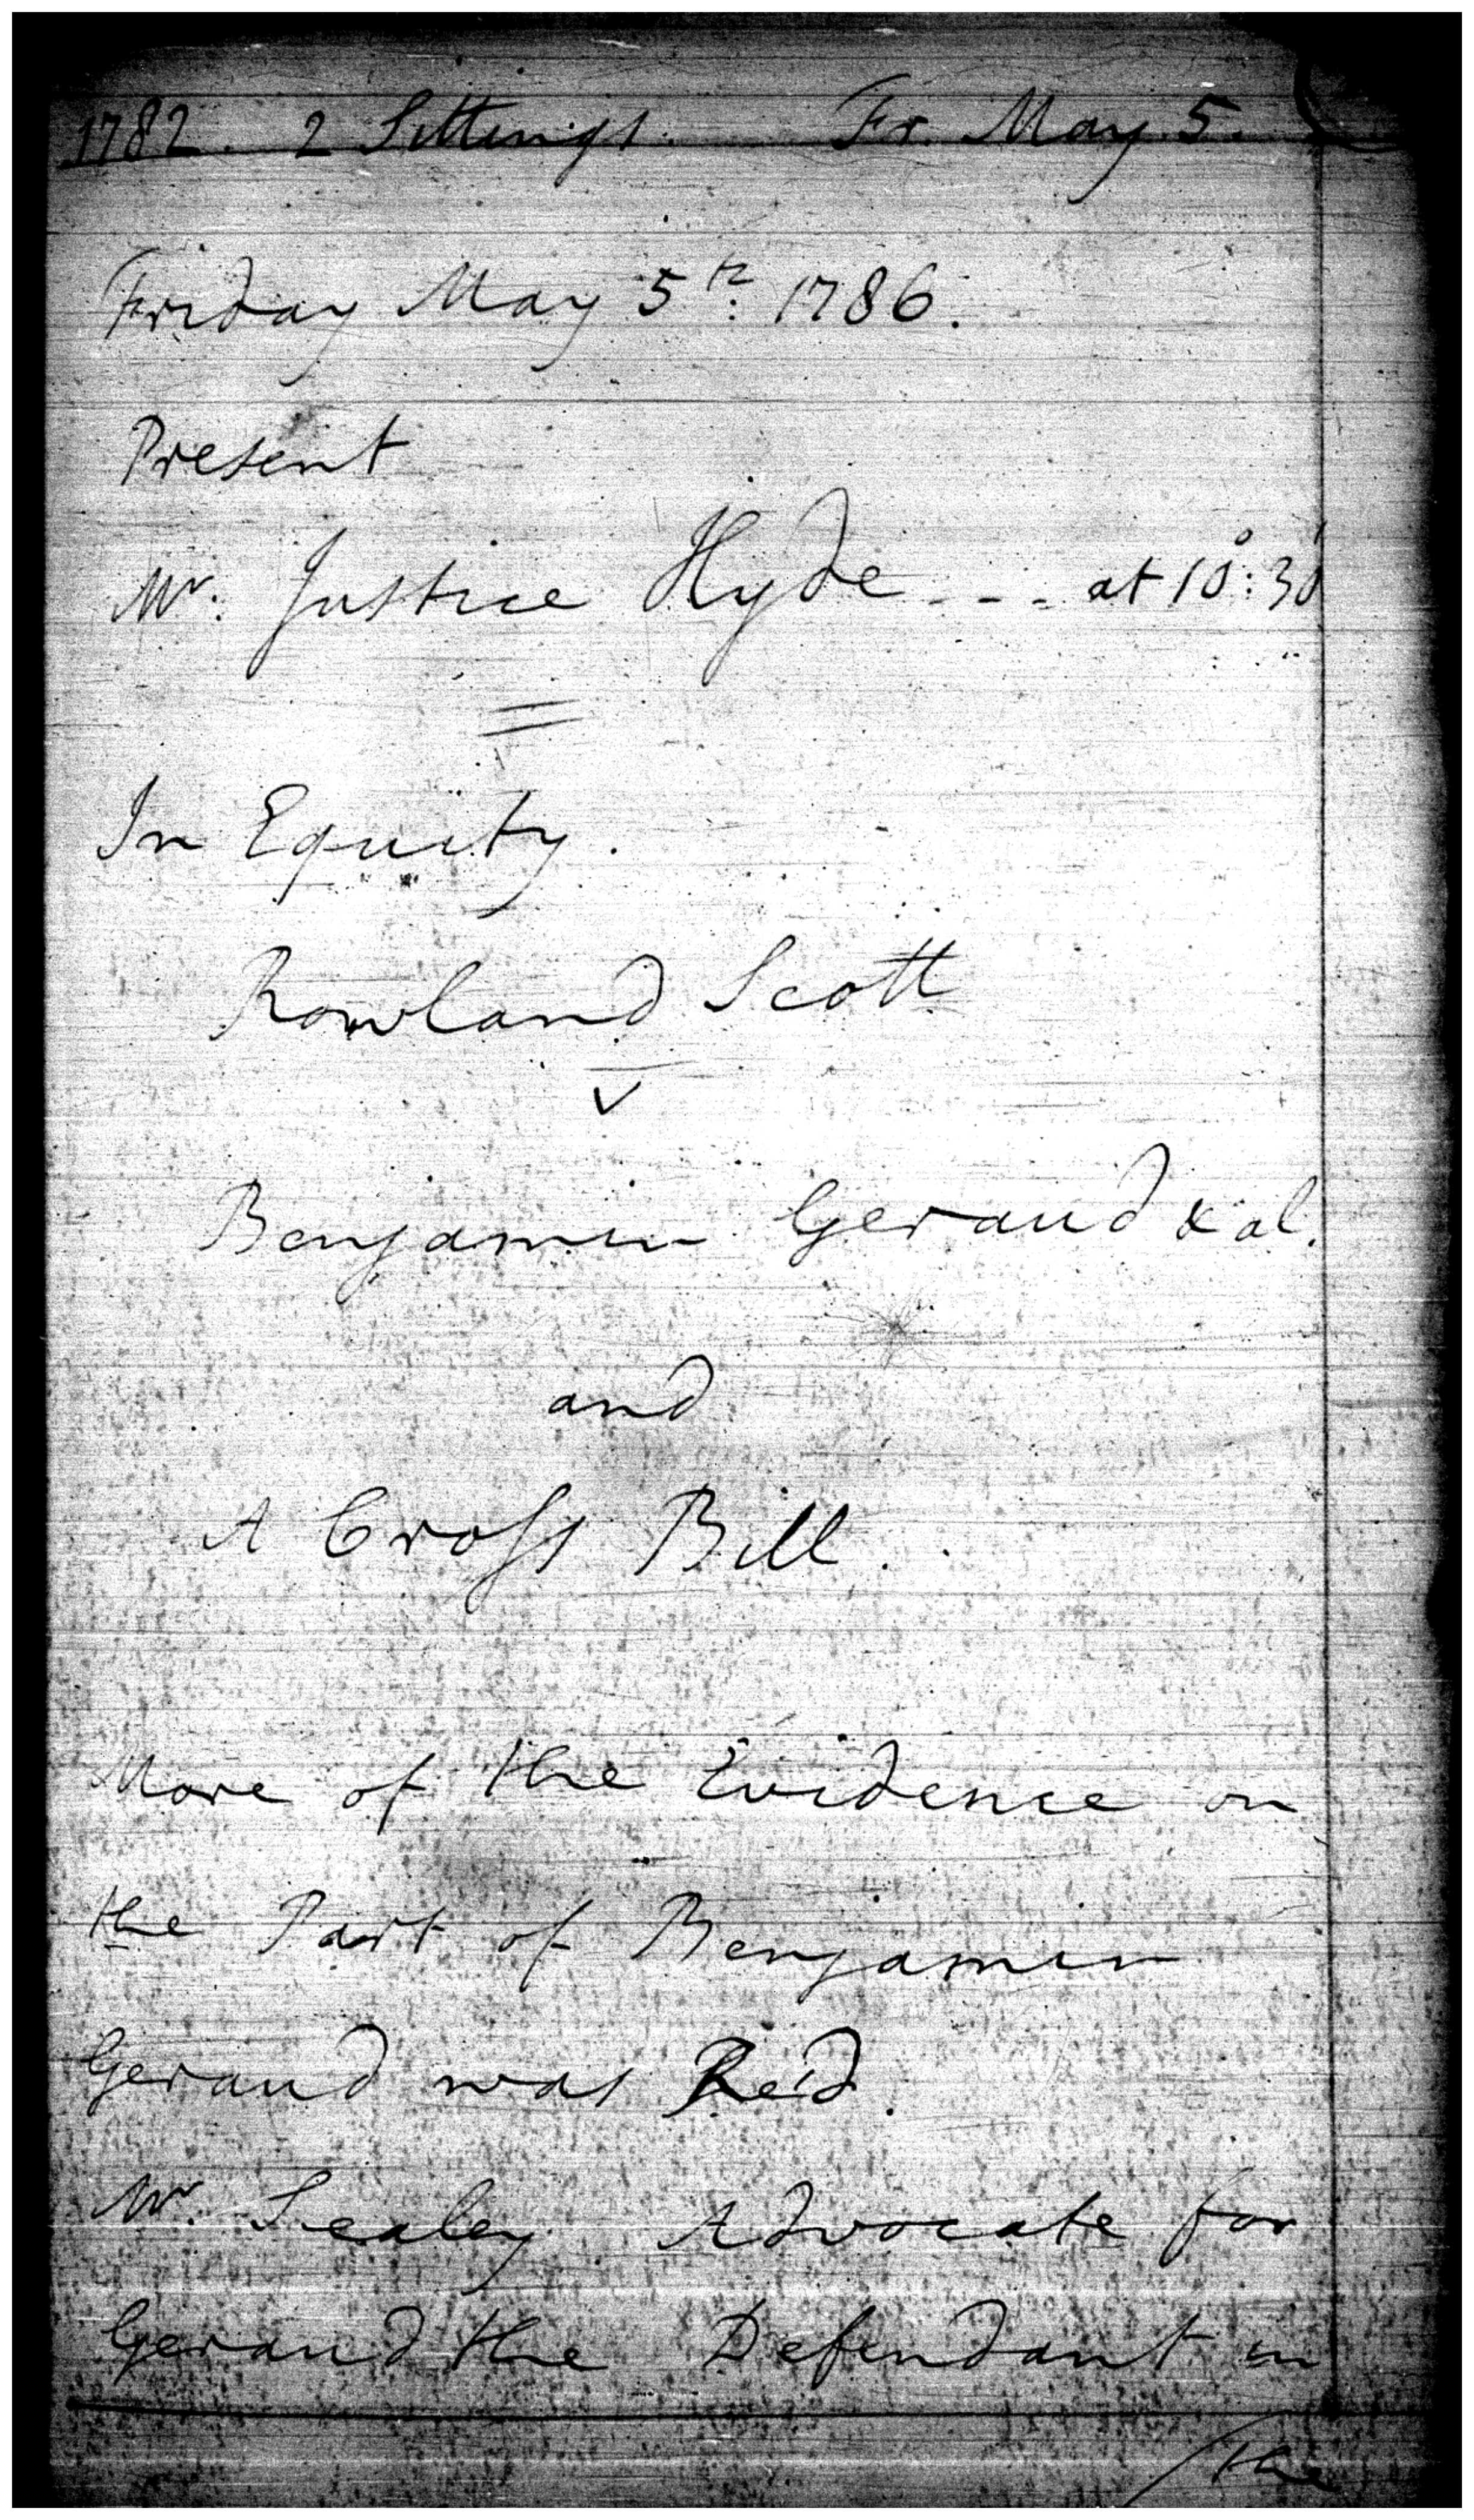 1782. 2 Sittings. Fr. May. 5.
Friday May 5th. 1786.
Present
Mr. Justice Hyde - - - at 10°:30'
In Equity.
Rowland Scott
v
Benjamin Geraud & al.
and
A Cross Bill.
More of the Evidence on
the Part of Benjamin
Geraud was Red.
Mr. Sealey Advocate for
Geraud the Defendant in
/the